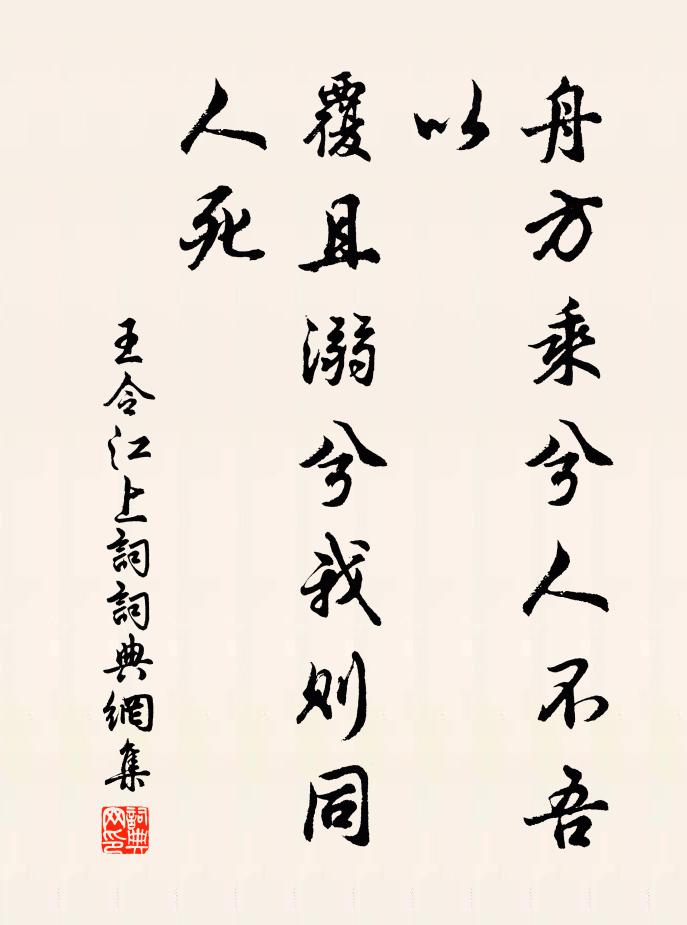 舟方乘兮人不吾
以
覆且溺兮我则同
人死
王令江上詞詞典網集
詞典
网印